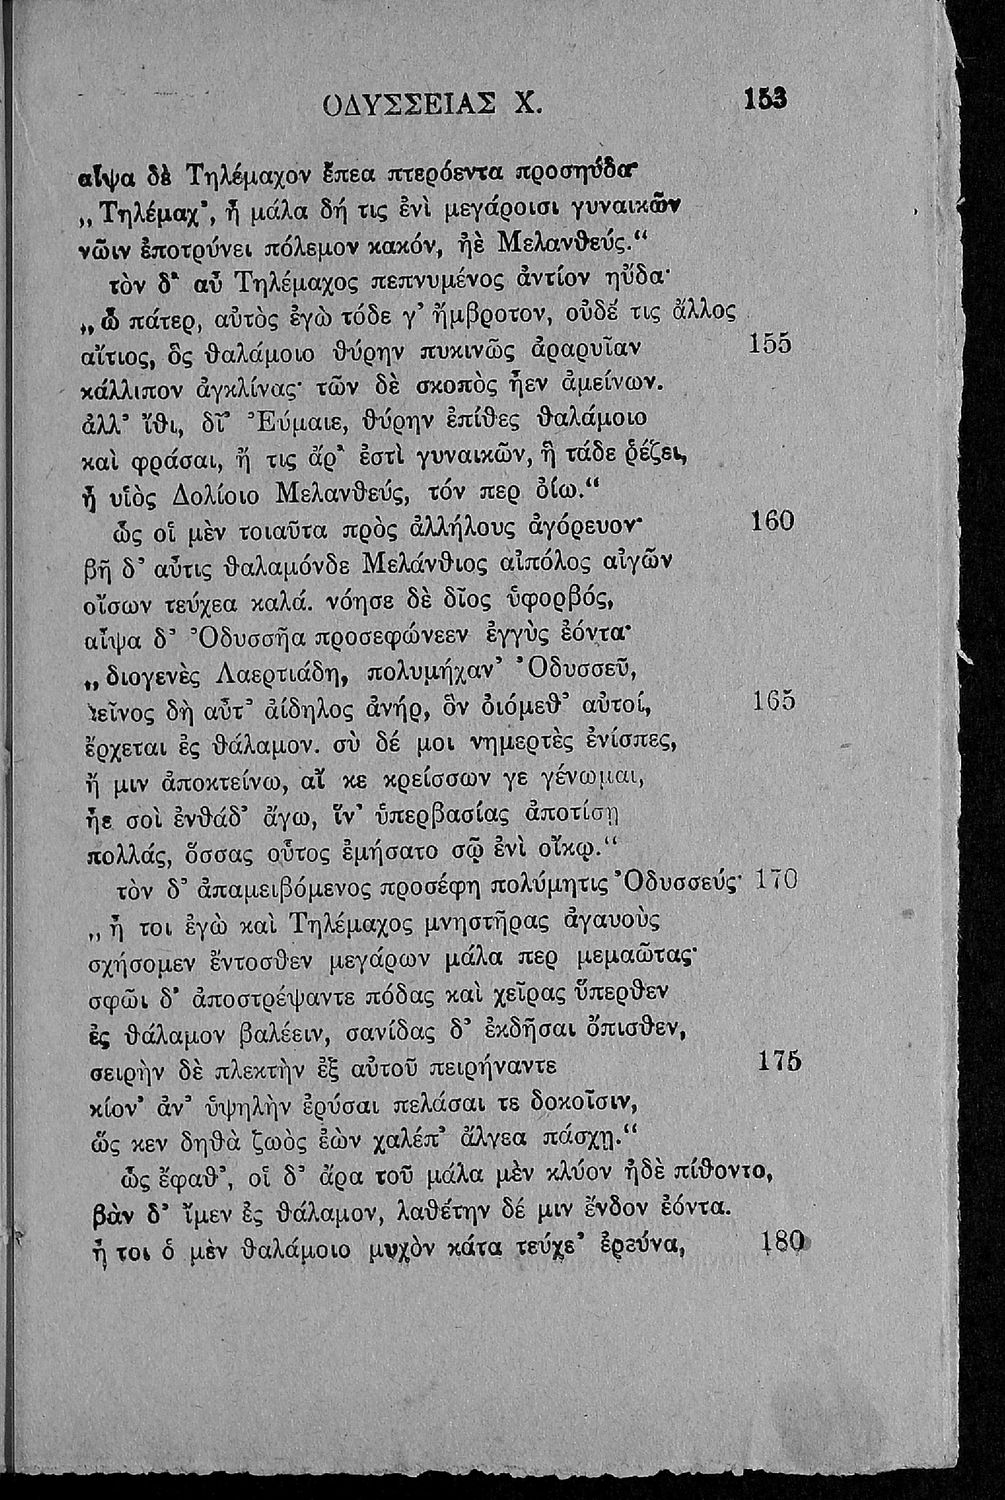 ΟΔΥΣΣΕΙΑΣ Χ. 153
αἶψα δὲ Τηλέμαχον ἔπεα πτερόεντα προσηύδα·
„Τηλέμαχ', ἦ μάλα δή τις ἐνὶ μεγάροισι γυναικῶν
νῶιν ἐποτρύνει πόλεμον κακόν, ἠὲ Μελανθεύς.“
τὸν δ' αὖ Τηλέμαχος πεπνυμένος ἀντίον ηὔδα·
„ὦ πάτερ, αὐτὸς ἐγὼ τόδε γ' ἤμβροτον, οὐδέ τις ἄλλος
αἴτιος, ὃς θαλάμοιο θύρην πυκινῶς ἀραρυῖαν 155
κάλλιπον ἀγκλίνας· τῶν δὲ σκοπὸς ἦεν ἀμείνων.
ἀλλ' ἴθι, δῖ' Ἐύμαιε, θύρην ἐπίθες θαλάμοιο
καὶ φράσαι, ἤ τις ἄρ' ἐστὶ γυναικῶν, ἣ τάδε ῥέζει,
ἦ υἱὸς Δολίοιο Μελανθεύς, τόν περ ὀίω.“
ὣς οἳ μὲν τοιαῦτα πρὸς ἀλλήλους ἀγόρευον· 160
βῆ δ' αὖτις θαλαμόνδε Μελάνθιος αἰπόλος αἰγῶν
οἴσων τεύχεα καλά. νόησε δὲ δῖος ὑφορβός,
αἶψα δ' Ὀδυσσῆα προσεφώνεεν ἐγγὺς ἐόντα·
„διογενὲς Λαερτιάδη, πολυμήχαν' Ὀδυσσεῦ,
κεῖνος δὴ αὖτ' ἀίδηλος ἀνήρ, ὃν ὀιόμεθ' αὐτοί, 165
ἔρχεται ἐς θάλαμον. σὺ δέ μοι νημερτὲς ἐνίσπες,
ἤ μιν ἀποκτείνω, αἴ κε κρείσσων γε γένωμαι,
ἦε σοὶ ἐνθάδ' ἄγω, ἵν' ὑπερβασίας ἀποτίσῃ
πολλάς, ὅσσας οὗτος ἐμήσατο σῷ ἐνὶ οἴκῳ.“
τὸν δ' ἀπαμειβόμενος προσέφη πολύμητις Ὀδυσσεύς· 170
„ἦ τοι ἐγὼ καὶ Τηλέμαχος μνηστῆρας ἀγαυοὺς
σχήσομεν ἔντοσθεν μεγάρων μάλα περ μεμαῶτας·
σφῶι δ' ἀποστρέψαντε πόδας καὶ χεῖρας ὕπερθεν
ἐς θάλαμον βαλέειν, σανίδας δ' ἐκδῆσαι ὄπισθεν,
σειρὴν δὲ πλεκτὴν ἐξ αὐτοῦ πειρήναντε 175
κίον' ἀν' ὑψηλὴν ἐρύσαι πελάσαι τε δοκοῖσιν,
ὥς κεν δηθὰ ζωὸς ἐὼν χαλέπ' ἄλγεα πάσχῃ.“
ὣς ἔφαθ', οἳ δ' ἄρα τοῦ μάλα μὲν κλύον ἠδὲ πίθοντο,
βὰν δ' ἴμεν ἐς θάλαμον, λαθέτην δέ μιν ἔνδον ἐόντα.
ἦ τοι ὁ μὲν θαλάμοιο μυχὸν κάτα τεύχε' ἐρεύνα, 180